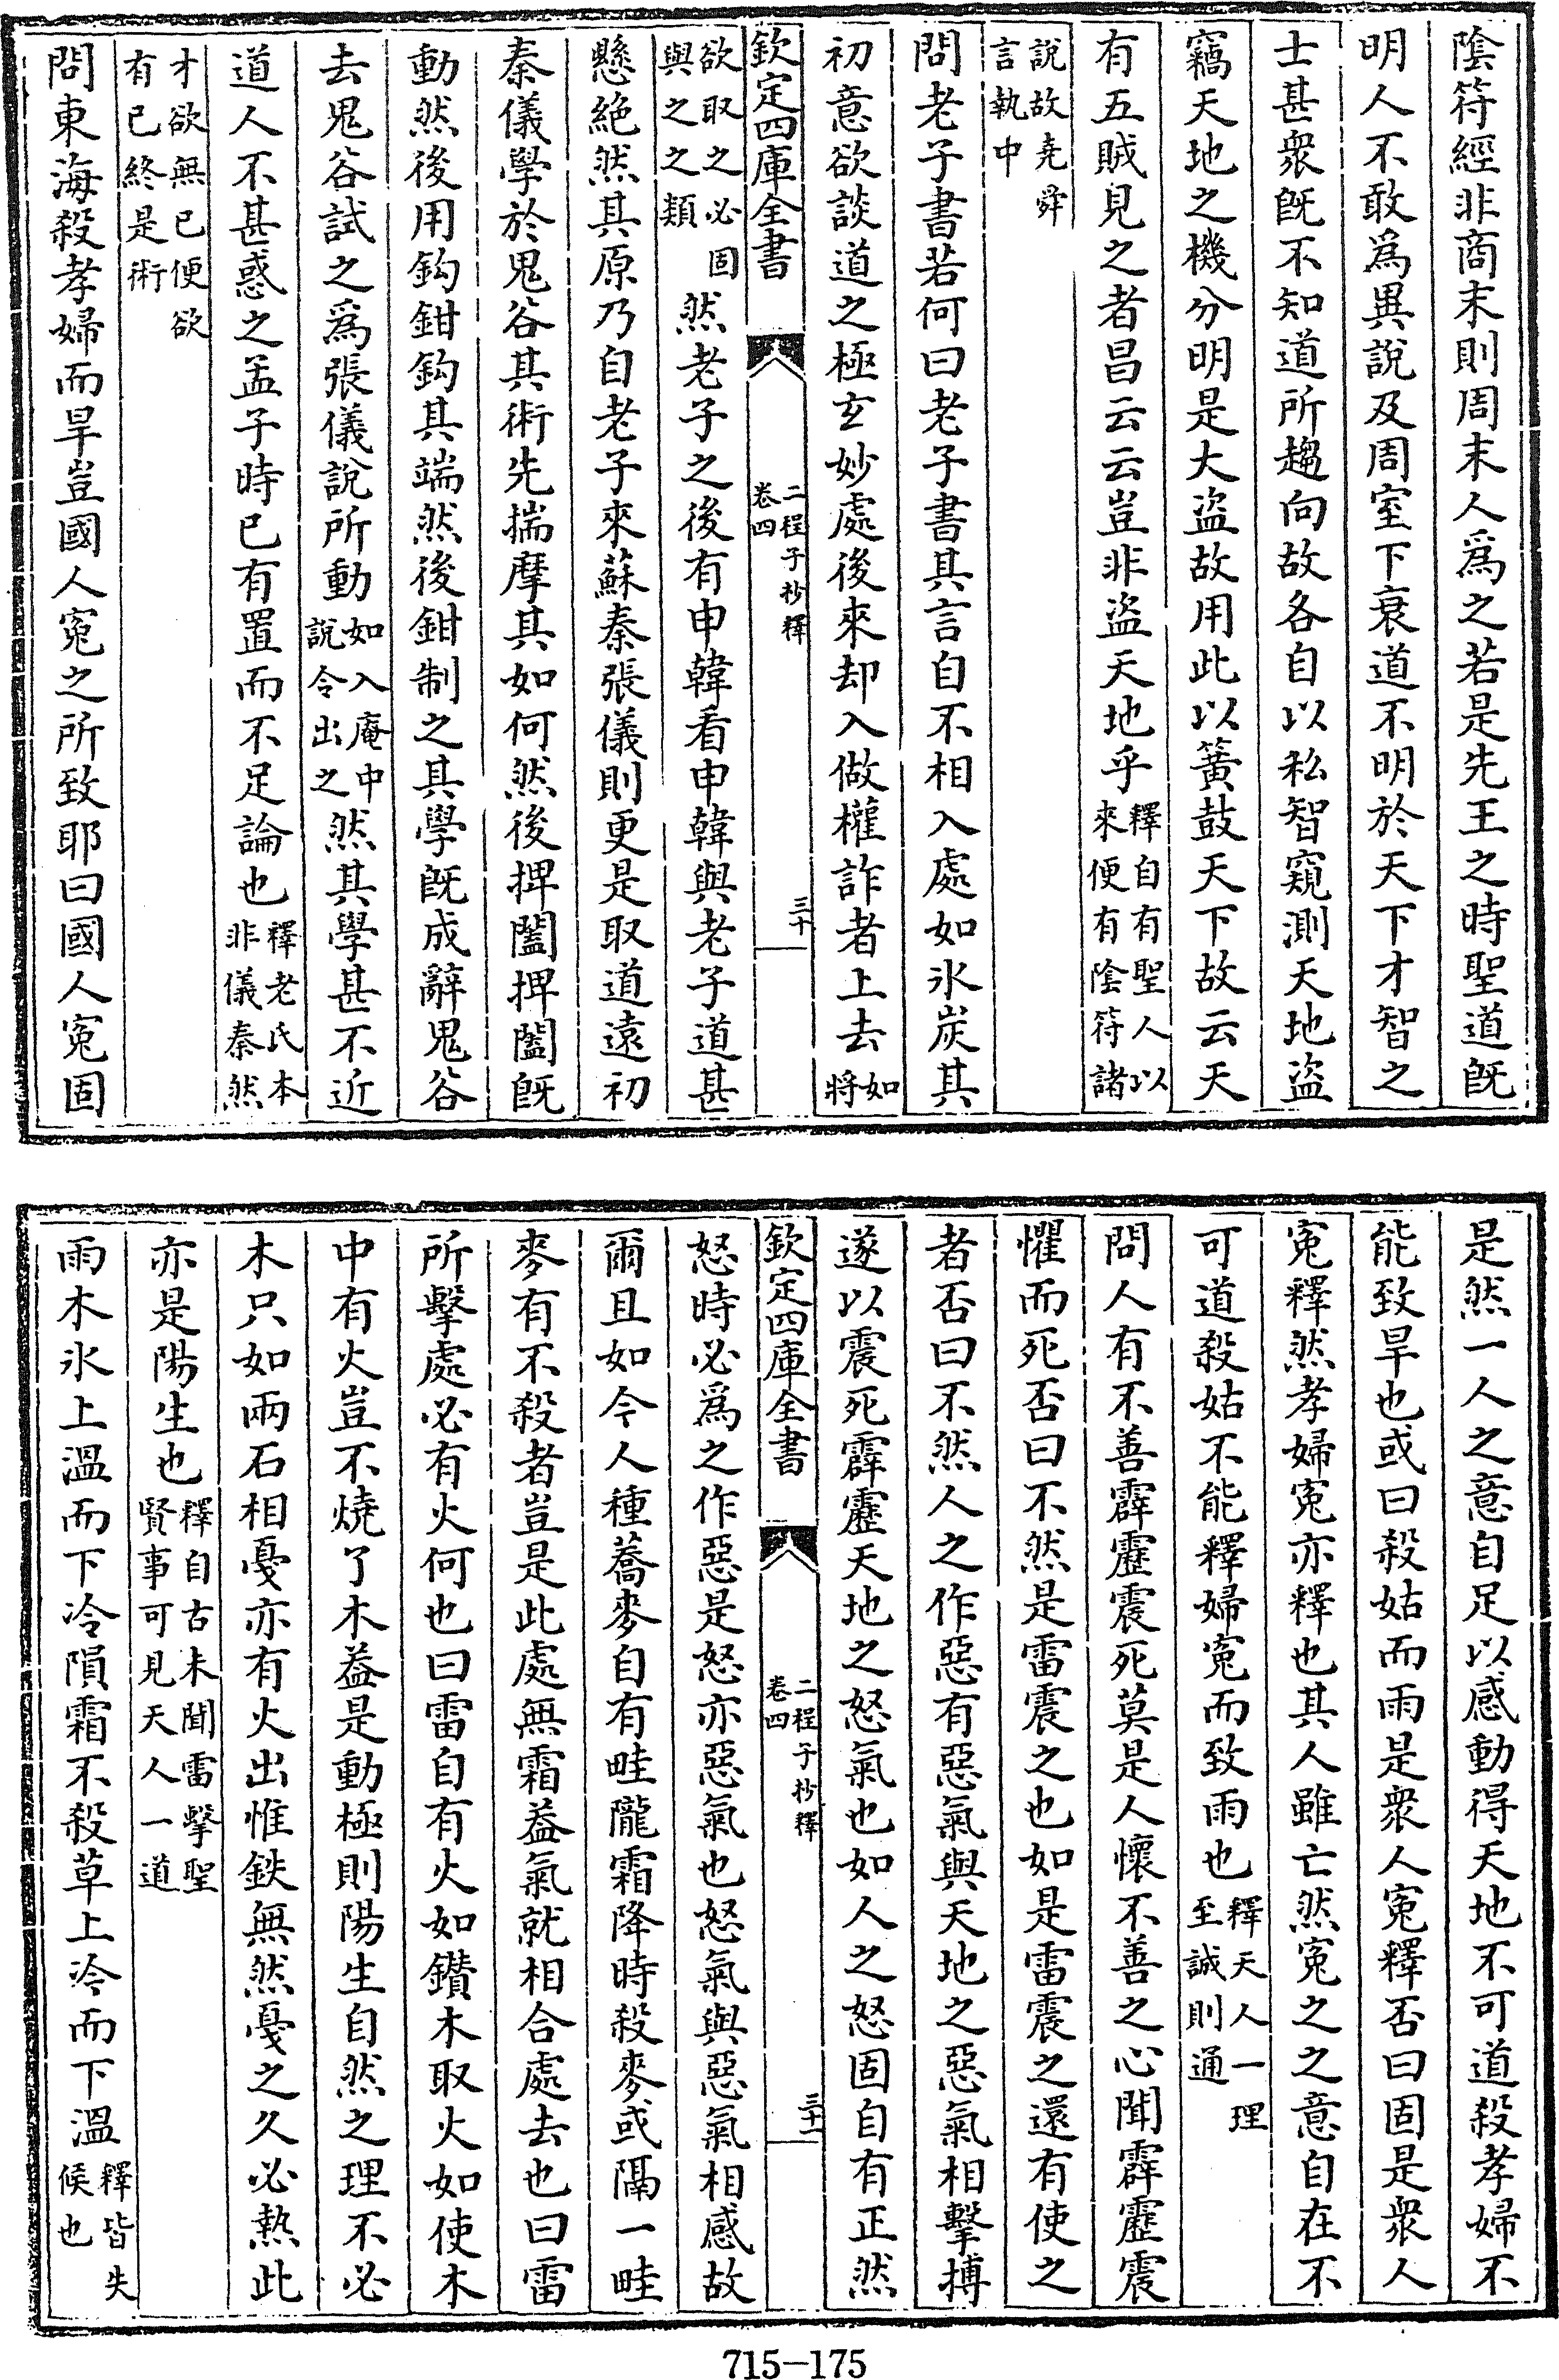 陰符經非商末則周末人爲之若是先王之時聖道旣
明人不敢爲異說及周室下衰道不明於天下才智之
士甚衆旣不知道所趨向故各自以私智窺測天地盜
竊天地之機分明是大盜故用此以簧鼓天下故云天
有五賊見之者昌云云豈非盜天地乎釋自有聖人以來便有陰符諸
說故堯舜言執中
問老子書若何曰老子書其言自不相入處如氷炭其
初意欲談道之極玄妙處後來却入做權詐者上去如將
欽定四庫全書 二程子抄釋卷四 三十
欲取之必固與之之類然老子之後有申韓看申韓與老子道甚
懸絶然其原乃自老子來蘇秦張儀則更是取道遠初
秦儀學於鬼谷其術先揣摩其如何然後捭闔捭闔旣
動然後用鈎鉗鈎其端然後鉗制之其學旣成辭鬼谷
去鬼谷試之爲張儀說所動如入庵中說令出之然其學甚不近
道人不甚惑之孟子時已有置而不足論也釋老氏本非儀秦然
才欲無已便欲有已終是術
問東海殺孝婦而旱豈國人寃之所致耶曰國人寃固
是然一人之意自足以感動得天地不可道殺孝婦不
能致旱也或曰殺姑而雨是衆人寃釋否曰固是衆人
寃釋然孝婦寃亦釋也其人雖亡然寃之之意自在不
可道殺姑不能釋婦寃而致雨也釋天人一理至誠則通
問人有不善霹靂震死莫是人懷不善之心聞霹靂震
懼而死否曰不然是雷震之也如是雷震之還有使之
者否曰不然人之作惡有惡氣與天地之惡氣相擊搏
遂以震死霹靂天地之怒氣也如人之怒固自有正然
欽定四庫全書 二程子抄釋卷四 三十一
怒時必爲之作惡是怒亦惡氣也怒氣與惡氣相感故
爾且如今人種蕎麥自有畦隴霜降時殺麥或隔一畦
麥有不殺者豈是此處無霜葢氣就相合處去也曰雷
所擊處必有火何也曰雷自有火如鑽木取火如使木
中有火豈不燒了木葢是動極則陽生自然之理不必
木只如兩石相戞亦有火出惟鉄無然戞之久必熱此
亦是陽生也釋自古未聞雷擊聖賢事可見天人一道
雨木氷上溫而下冷隕霜不殺草上冷而下溫釋皆失候也
715-175